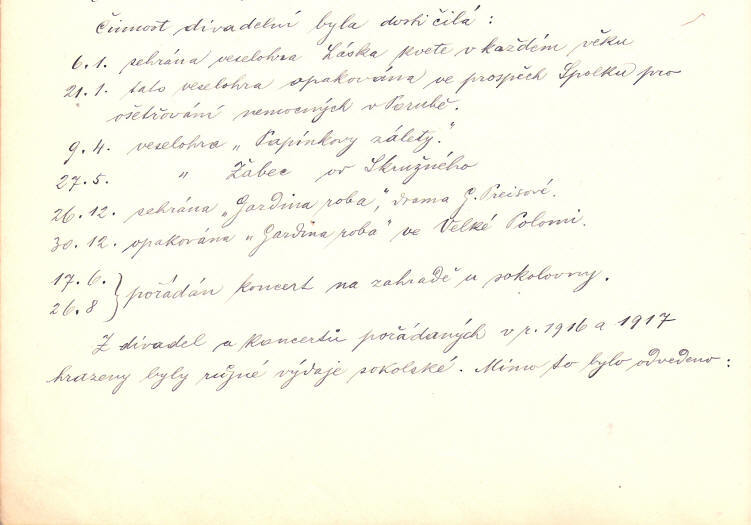 Činnost divadelní byla dosti čilá:
6.1. sehrána veselohra Láska kvete v každém věku
21.1. tato veselohra opakována ve prospěch Spolku pro
ošetřování nemocných v Porubě.
9.4. veselohra „Papínkovy zálety."
27.5. " Žabec od Skružného
26.12. sehrána „Gazdina roba", drama G. Preisové.
30.12. opakována „Gazdina roba" ve Velké Polomi.
17.6.
26.8 } pořádán koncert na zahradě u sokolovny.
Z divadel a koncertů pořádaných v r. 1916 a 1917
hrazeny byly různé výdaje sokolské. Mimo to bylo odvedeno: